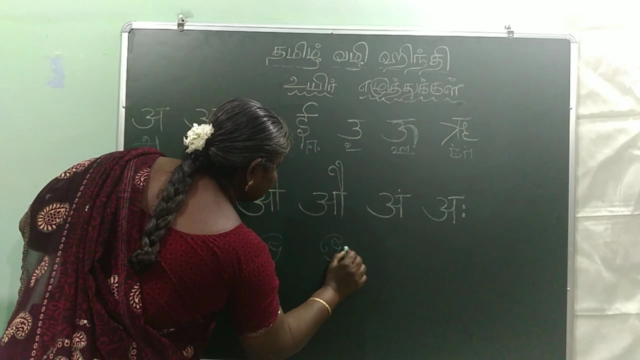 தமிழ் வழி ஹிந்தி
உயிர் எழுத்துக்கள்
अ ई उ ऊ ऋ
ஈ உ ஊ
औ अं अः